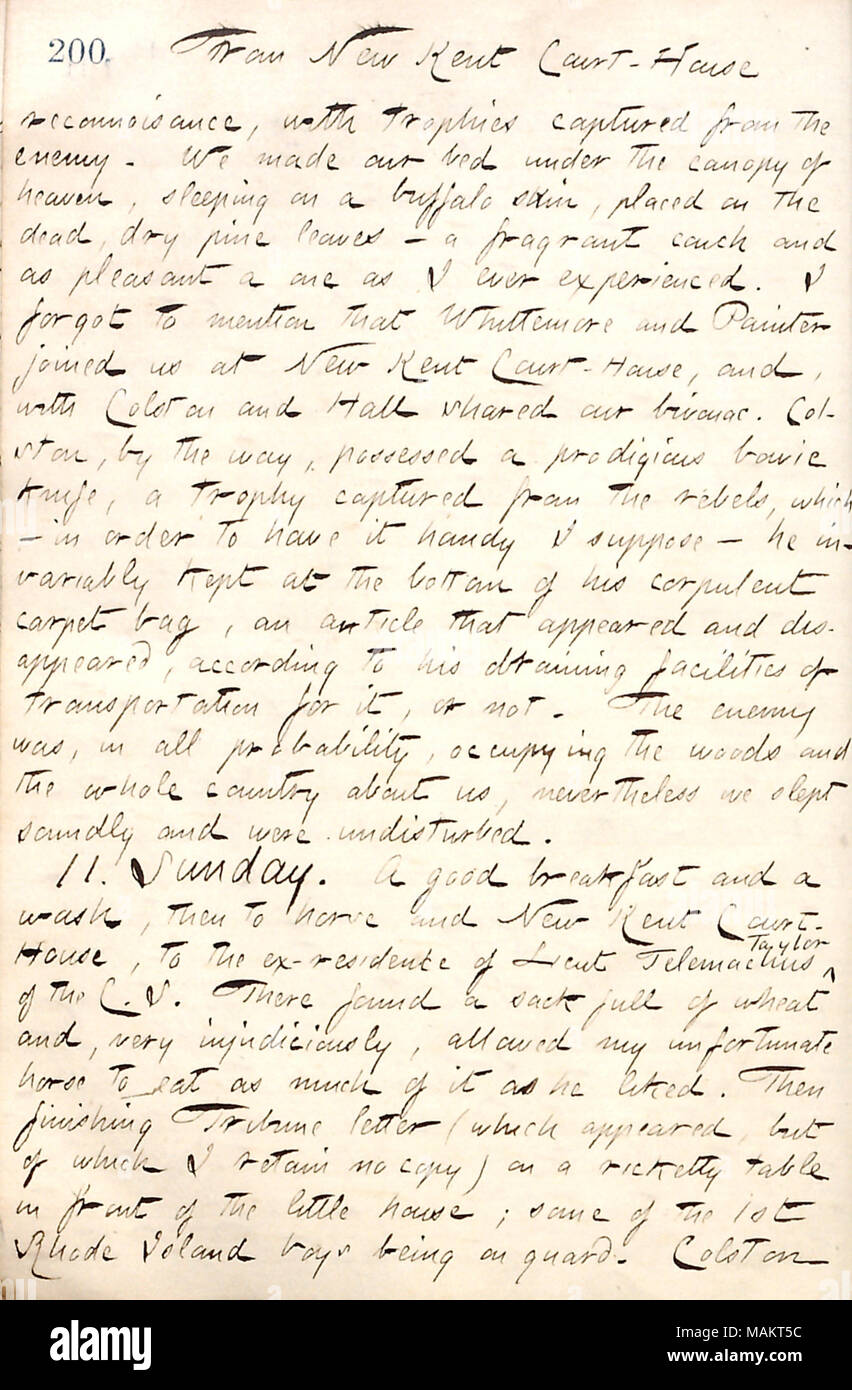 200. From New Kent Court-House
reconnoisance, with trophies captured from the
enemy. We made our bed under the canopy of
heaven, sleeping on a buffalo skin, placed on the
dead, dry pine leaves — a fragrant couch and
as pleasant a one as I ever experienced. I
forgot to mention that Whittemore and Painter
joined us at New Kent Court-House, and,
with Colston and Hall shared our bivouac. Col-
ston, by the way, possessed a prodigious bowie
knife, a trophy captured from the rebels, which
— in order to have it handy I suppose — he in-
variably kept at the bottom of his corpulent
carpet bag, an article that appeared and dis-
appeared, according to his obtaining facilities of
transportation for it, or not. The enemy
was, in all probability, occupying the woods and
the whole country about us, nevertheless we slept
soundly and were undisturbed.
11. Sunday. A good breakfast and a
wash, then to horse and New Kent Court-
House, to the ex-residence of Lieut Telemachus Taylor
of the C. S. There found a sack full of wheat
and, very injudiciously, allowed my unfortunate
horse to eat as much of it as he liked. Then
finishing Tribune letter (which appeared, but
of which I retain no copy) on a ricketty table
in front of the little house; some of the 1st
Rhode Island boys being on guard. Colston
alamy
Image ID: MAKT5C
www.alamy.com